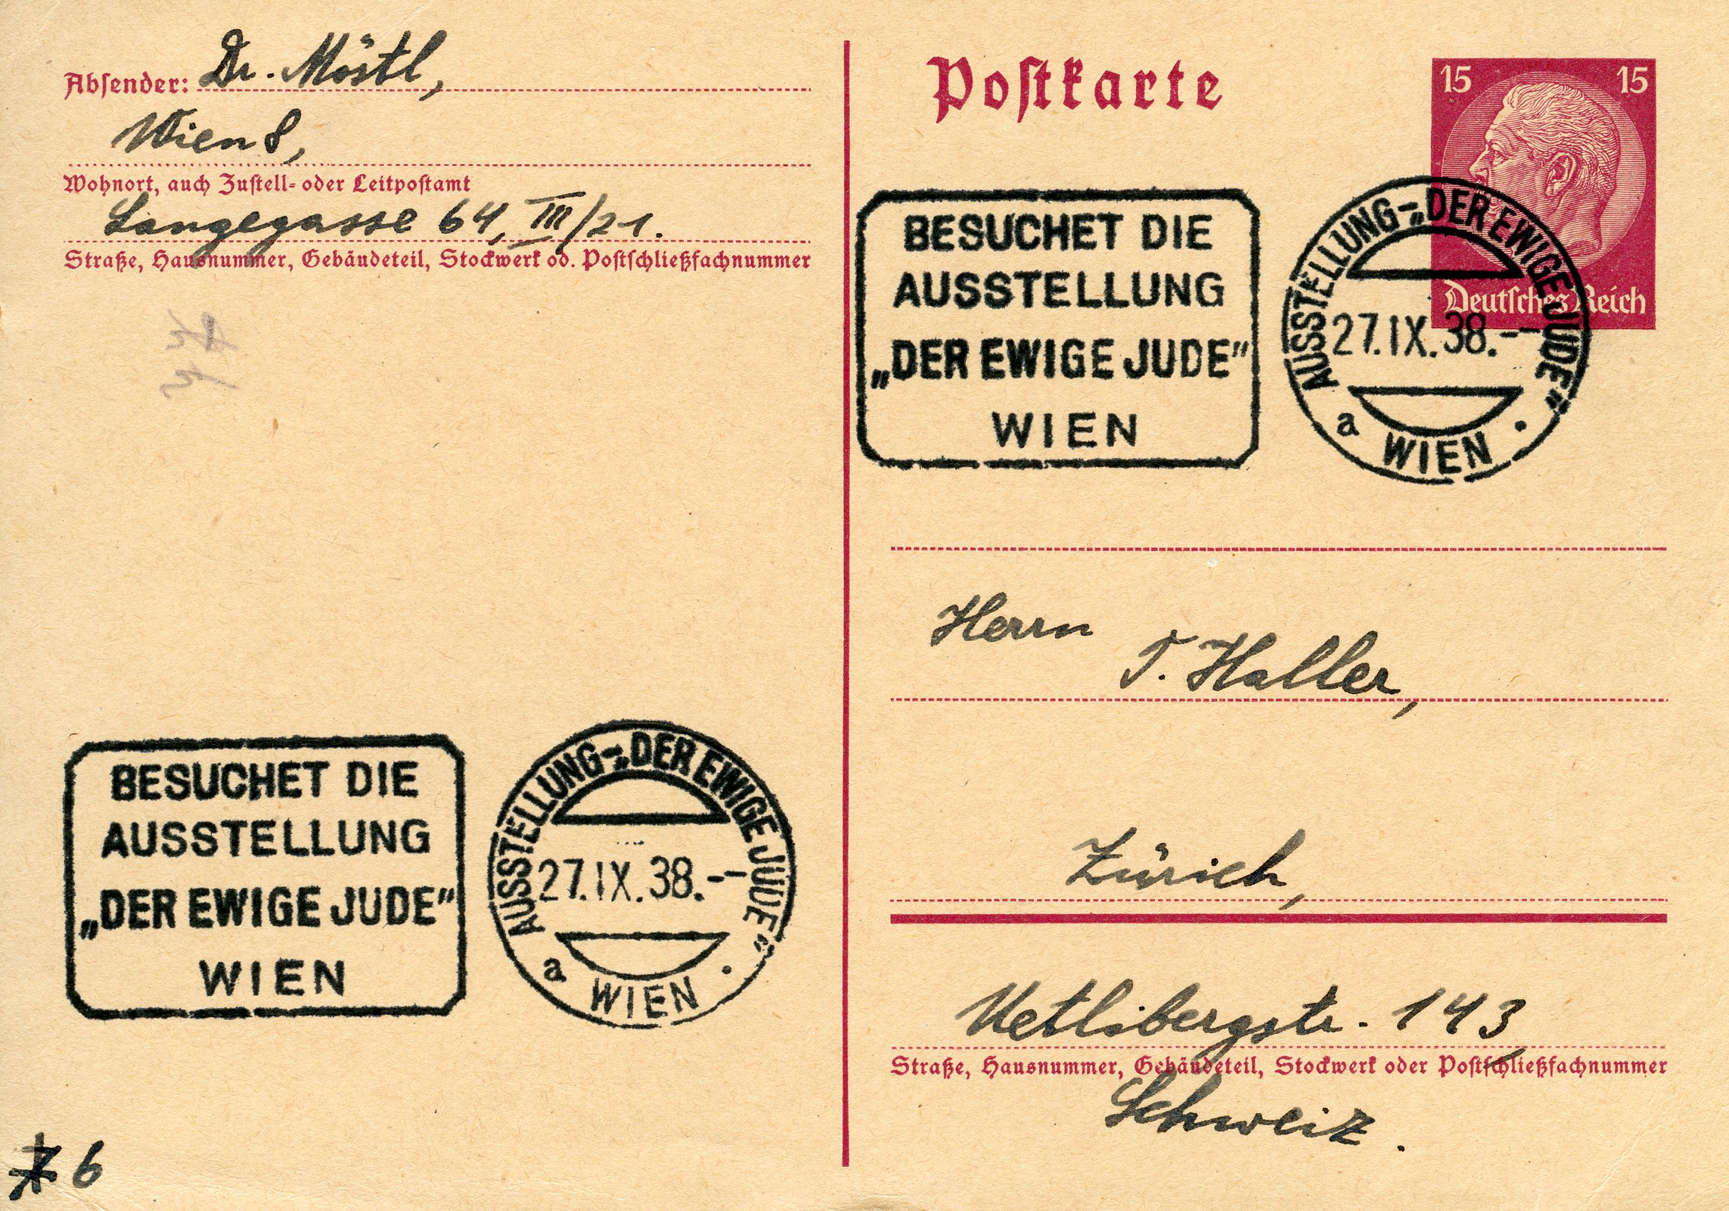 Absender: Dr. Möstl,
Wien 8,
Wohnort, auch Zustell- oder Leitpostamt
Langegasse 64, III/21.
Straße, Hausnummer, Gebäudeteil, Stockwerk od. Postschließfachnummer
Postkarte
15 15
Deutsches Reich
BESUCHET DIE
AUSSTELLUNG
„DER EWIGE JUDE”
WIEN
AUSSTELLUNG-„DER EWIGE JUDE”
27.IX.38.--
a WIEN
Herrn
T. Haller,
Zürich,
Uetlibergstr. 143,
Straße, Hausnummer, Gebäudeteil, Stockwerk oder Postschließfachnummer
Schweiz.
BESUCHET DIE
AUSSTELLUNG
„DER EWIGE JUDE”
WIEN
AUSSTELLUNG-„DER EWIGE JUDE”
27.IX.38.--
a WIEN
6